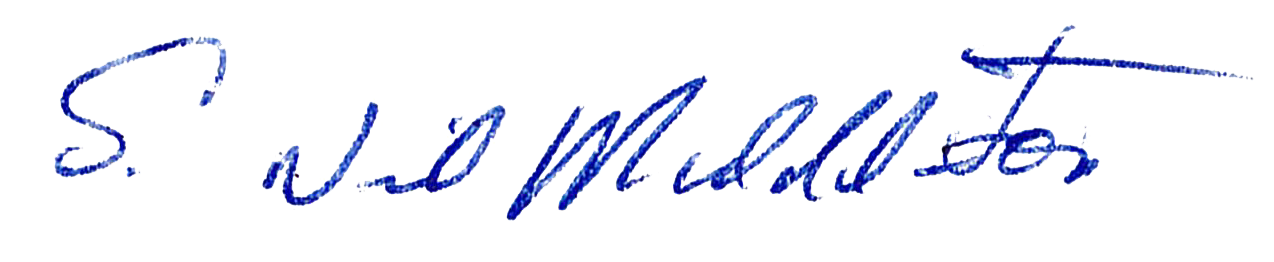 S. Neil Middleton